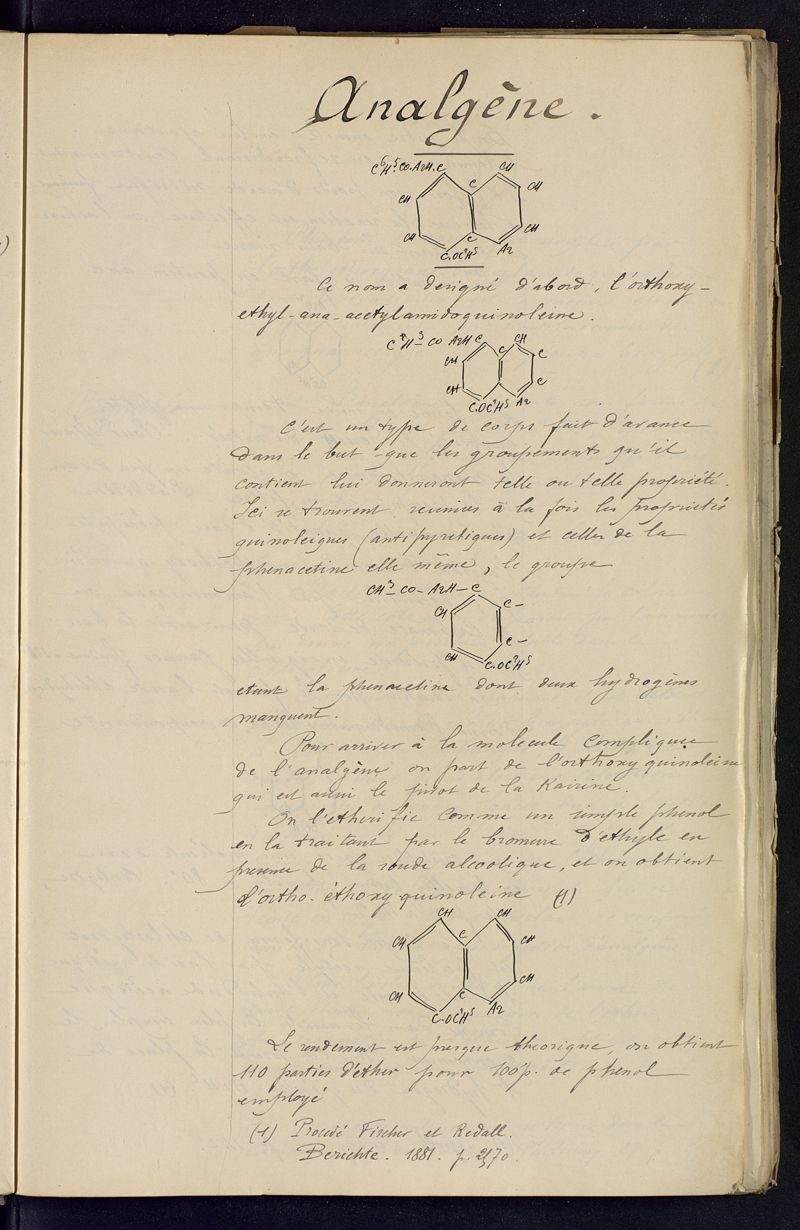 Analgène.
C⁶H⁵.CO.AzH.C
CH
C
CH
CH
CH
CH
C
C.OC²H⁵
Az
Ce nom a designé d'abord, l'orthoxy-
ethyl-ana-acetylamidoquinoleine.
CO AzH C
C
CH
CH
C
CH
C
C.OC²H⁵
Az
C'est un type de corps fait d'avance
dans le but que les groupements qu'il
contient lui donneront telle ou telle propriété.
Ici se trouvent reunies à la fois les proprietés
quinoleiques (antipyretiques) et celles de la
phenacetine elle même, le groupe
CH³–CO–AzH–C
CH
C–
C–
CH
C.OC²H⁵
etant la phenacetine dont deux hydrogènes
manquent.
Pour arriver à la molecule compliquee
de l'analgène on part de l'orthoxyquinoleine
qui est aussi le pivot de la Kairine.
On l'etherifie comme un simple phenol
en la traitant par le bromure d'éthyle en
presence de la soude alcoolique, et on obtient
l'ortho-éthoxyquinoleine (1)
CH
CH
CH
C
CH
CH
CH
C
C.OC²H⁵
Az
Le rendement est presque theorique, on obtient
110 parties d'ether pour 100 p. de phenol
employé
(1) Procédé Fischer et
Berichte. 1881. p.
)